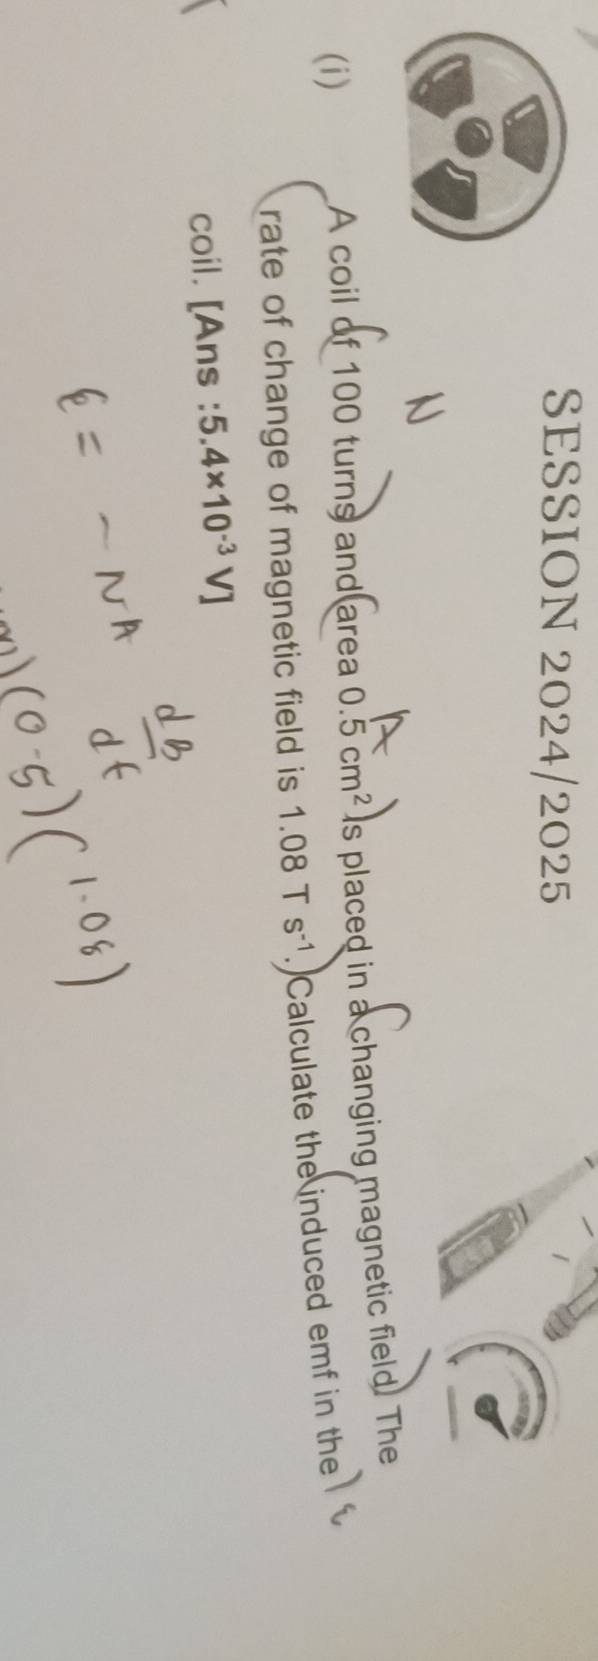 SESSION 2024/2025
N
A
(i) A coil of 100 turns and area 0.5 cm² is placed in a changing magnetic field. The
rate of change of magnetic field is 1.08 T s⁻¹. Calculate the induced emf in the ε
coil. [Ans :5.4×10⁻³ V]
ε = - NA dB/dt
)(0.5)(1.08)